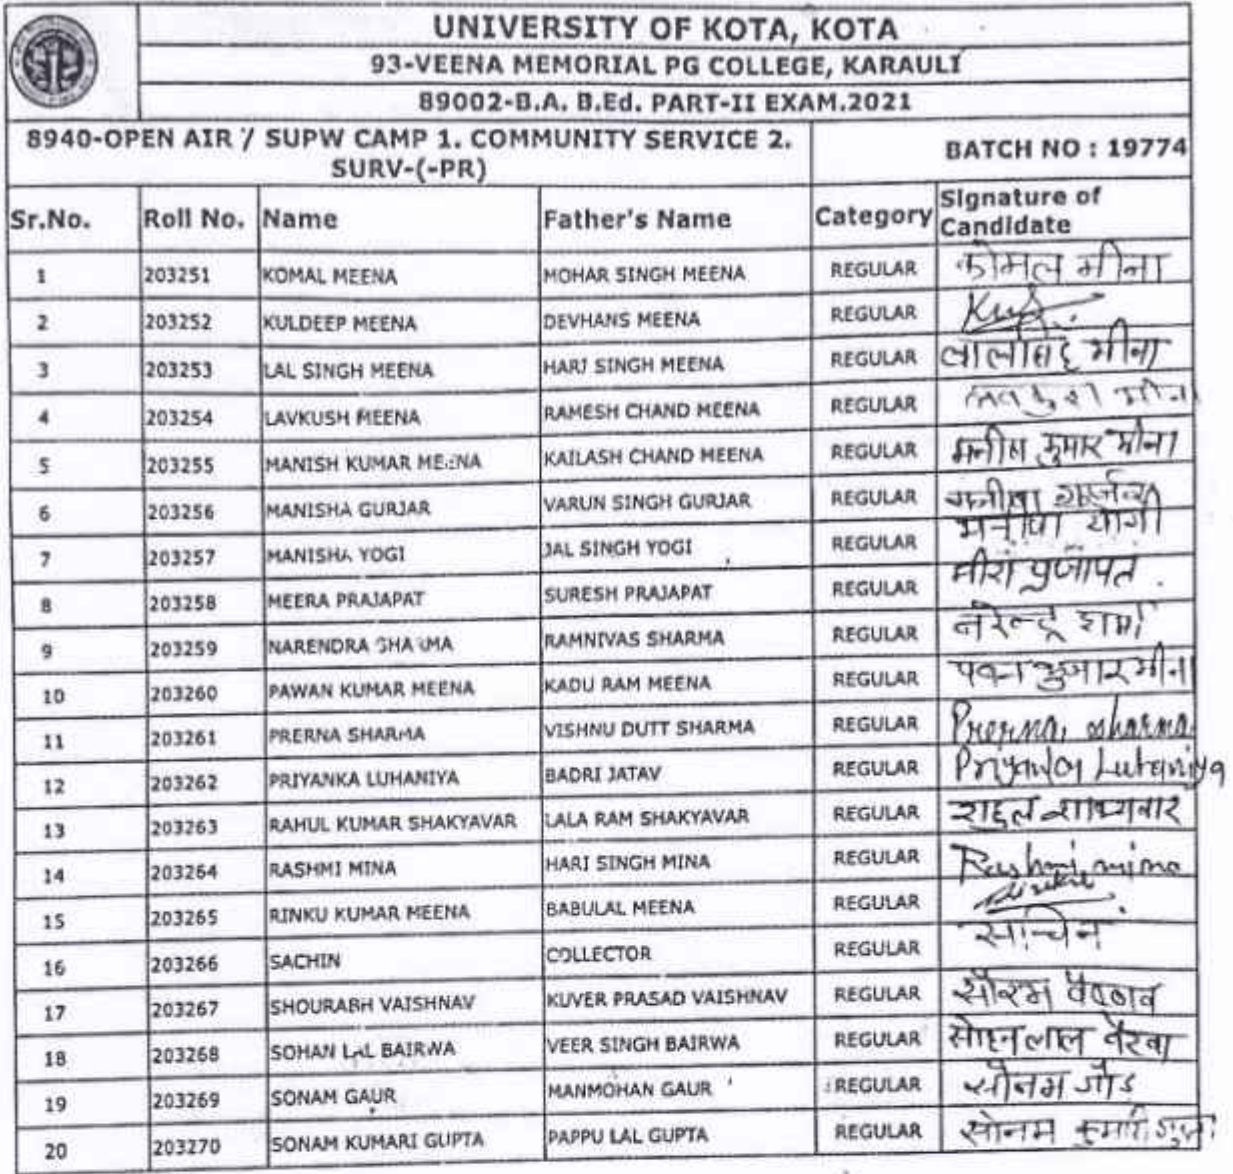 UNIVERSITY OF KOTA, KOTA
93-VEENA MEMORIAL PG COLLEGE, KARAULI
89002-B.A. B.Ed. PART-II EXAM.2021
8940-OPEN AIR / SUPW CAMP 1. COMMUNITY SERVICE 2. BATCH NO : 19774
SURV-(-PR)
Sr.No. Roll No. Name Father's Name Category Signature of
Candidate
1 203251 KOMAL MEENA MOHAR SINGH MEENA REGULAR कोमल मीना
2 203252 KULDEEP MEENA DEVHANS MEENA REGULAR
3 203253 LAL SINGH MEENA HARI SINGH MEENA REGULAR लालसिंह मीना
4 203254 LAVKUSH MEENA RAMESH CHAND MEENA REGULAR लवकुश मीना
5 203255 MANISH KUMAR MEENA KAILASH CHAND MEENA REGULAR मनीष कुमार मीना
6 203256 MANISHA GURJAR VARUN SINGH GURJAR REGULAR मनीषा
7 203257 MANISHA YOGI JAL SINGH YOGI REGULAR मनीषा योगी
8 203258 MEERA PRAJAPAT SURESH PRAJAPAT REGULAR मीरा प्रजापत
9 203259 NARENDRA SHARMA RAMNIVAS SHARMA REGULAR नरेन्द्र शर्मा
10 203260 PAWAN KUMAR MEENA KADU RAM MEENA REGULAR पवन कुमार मीना
11 203261 PRERNA SHARMA VISHNU DUTT SHARMA REGULAR Prerna sharma
12 203262 PRIYANKA LUHANIYA BADRI JATAV REGULAR Priyanka Luhaniya
13 203263 RAHUL KUMAR SHAKYAVAR LALA RAM SHAKYAVAR REGULAR राहुल शाक्यवार
14 203264 RASHMI MINA HARI SINGH MINA REGULAR Rashmi mina
15 203265 RINKU KUMAR MEENA BABULAL MEENA REGULAR
16 203266 SACHIN COLLECTOR REGULAR सचिन
17 203267 SHOURABH VAISHNAV KUVER PRASAD VAISHNAV REGULAR सौरभ वैष्णव
18 203268 SOHAN LAL BAIRWA VEER SINGH BAIRWA REGULAR सोहन लाल बैरवा
19 203269 SONAM GAUR MANMOHAN GAUR REGULAR सोनम गौड
20 203270 SONAM KUMARI GUPTA PAPPU LAL GUPTA REGULAR सोनम कुमारी गुप्ता